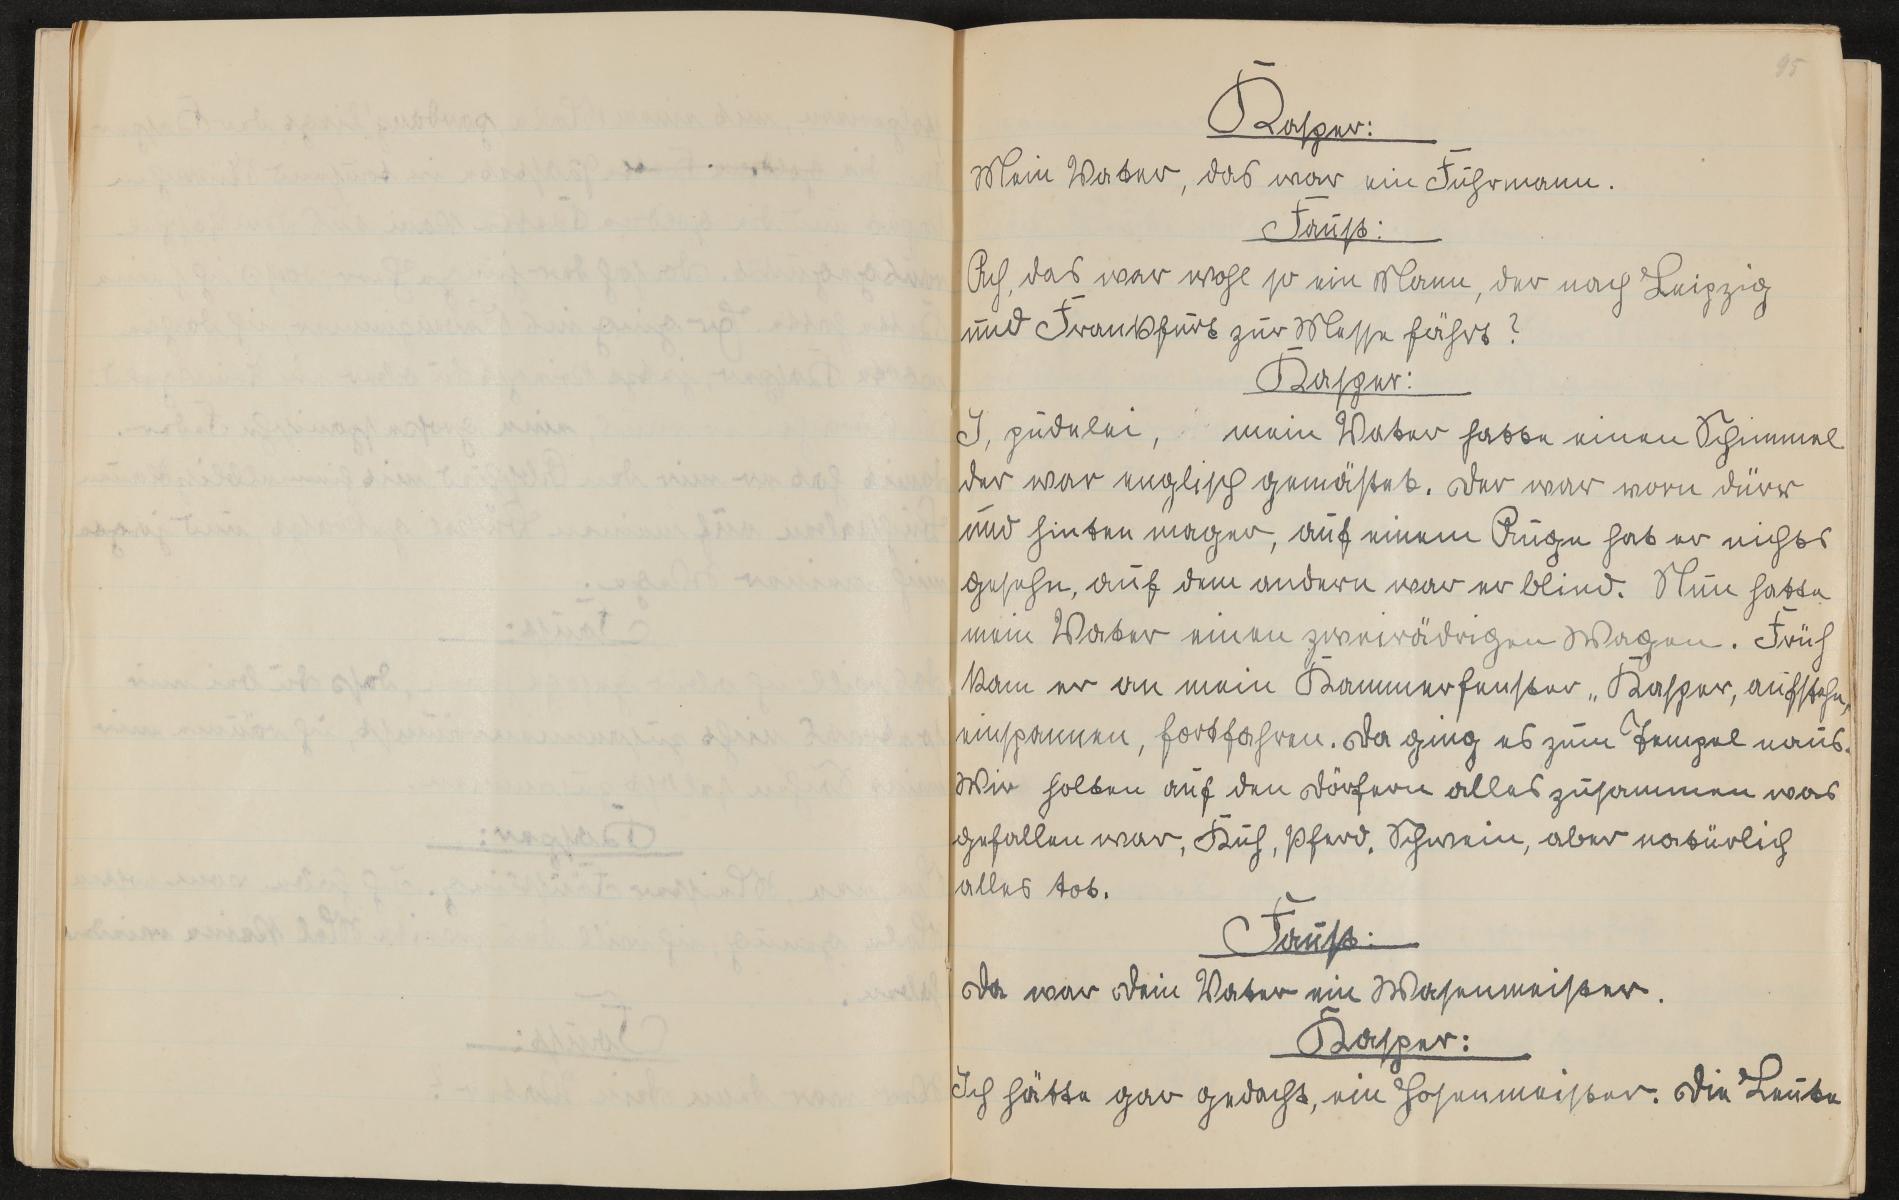 95
Kasper:
Mein Vater, das war ein Fuhrmann.
Faust:
Ach, das war wohl so ein Mann, der nach Leipzig
und Frankfurt zur Messe fährt?
Kasper:
I, pudelei, mein Vater hatte einen Schimmel
der war englisch gemästet. Der war vorn dürr
und hinten mager, auf einem Auge hat er nichts
gesehn, auf dem andern war er blind. Nun hatte
mein Vater einen zweirädrigen Wagen. Früh
kam er an mein Kammerfenster „Kasper, aufstehn,
einspannen, fortfahren. Da ging es zum Tempel naus.
Wir holten auf den Dörfern alles zusammen was
gefallen war, Kuh, Pferd, Schwein, aber natürlich
alles tot.
Faust:
Da war Dein Vater ein Wasenmeister.
Kasper:
Ich hätte gar gedacht, ein Hosenmeister. Die Leute